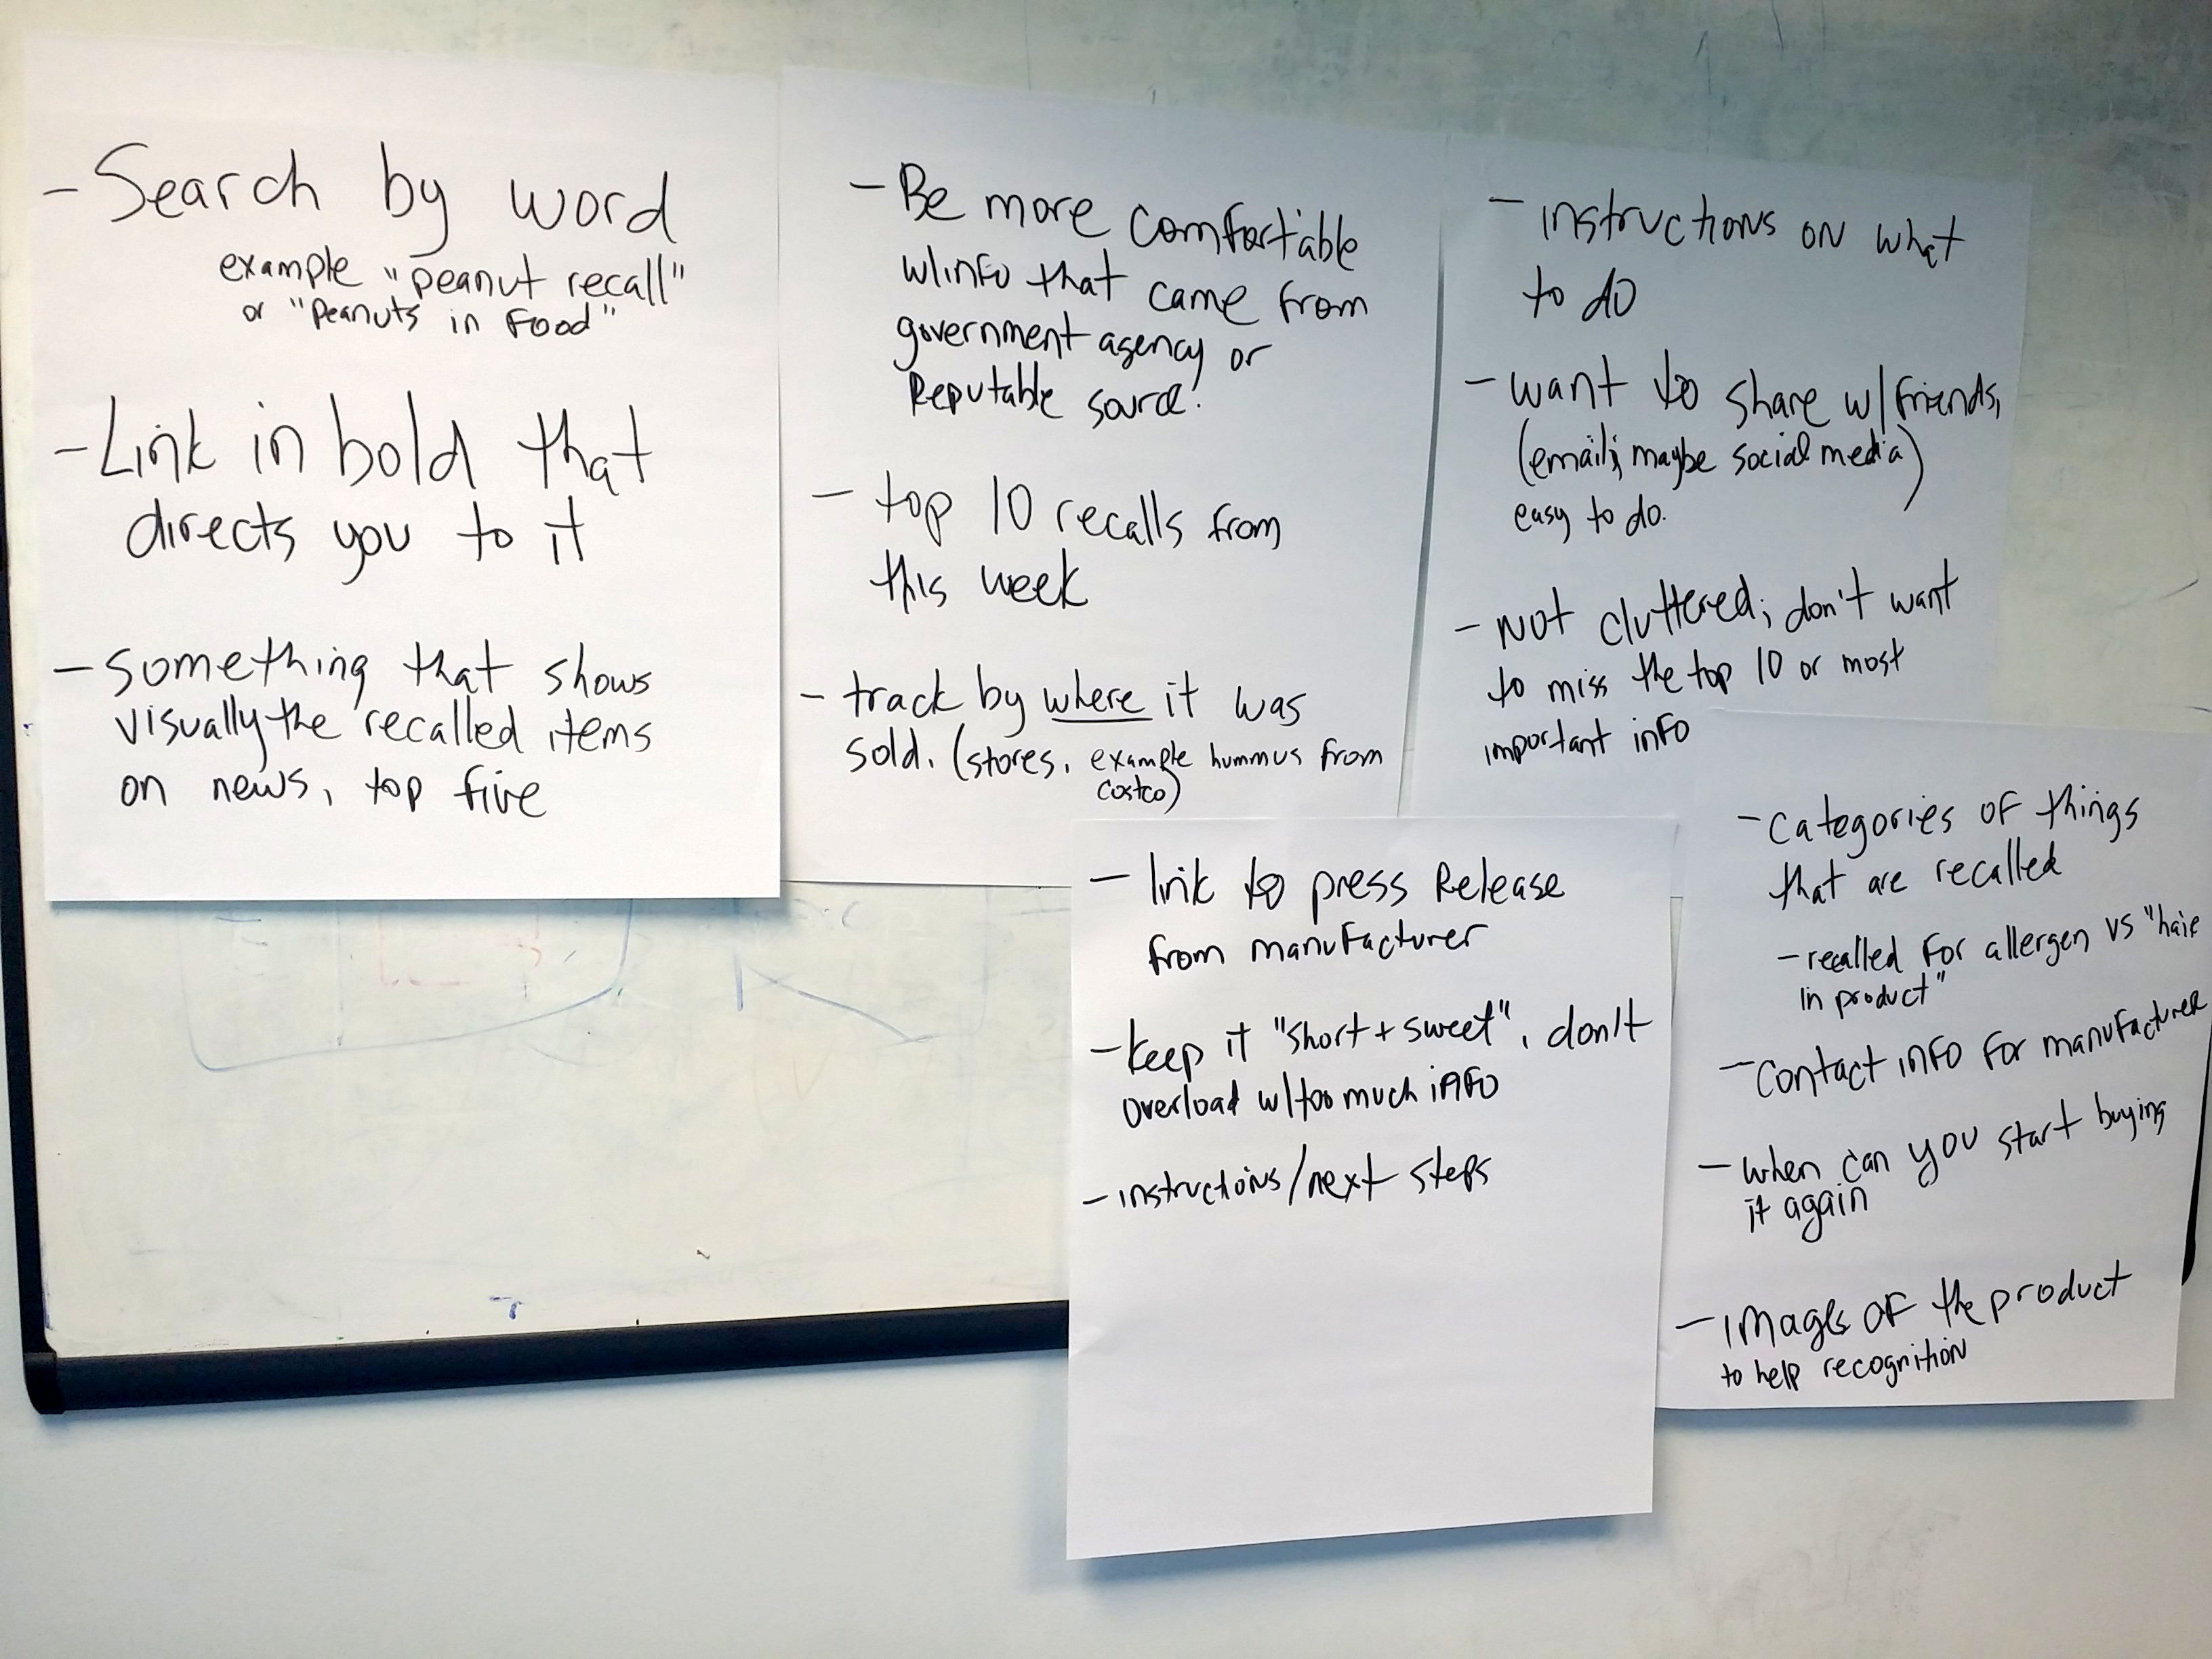 - Search by word
example "peanut recall"
or "Peanuts in Food"
- Link in bold that
directs you to it
- something that shows
visually the recalled items
on news, top five
- Be more comfortable
w/info that came from
government agency or
Reputable source!
- top 10 recalls from
this week
- track by where it was
sold. (stores, example hummus from
costco)
- instructions on what
to do
- want to share w/friends,
(email; maybe social media)
easy to do.
- Not cluttered; don't want
to miss the top 10 or most
important info
- link to press Release
from manufacturer
- keep it "short + sweet", don't
overload w/too much info
- instructions/next steps
- categories of things
that are recalled
- recalled for allergen vs "hair
in product"
- contact info for manufacturer
- when can you start buying
it again
- images of the product
to help recognition